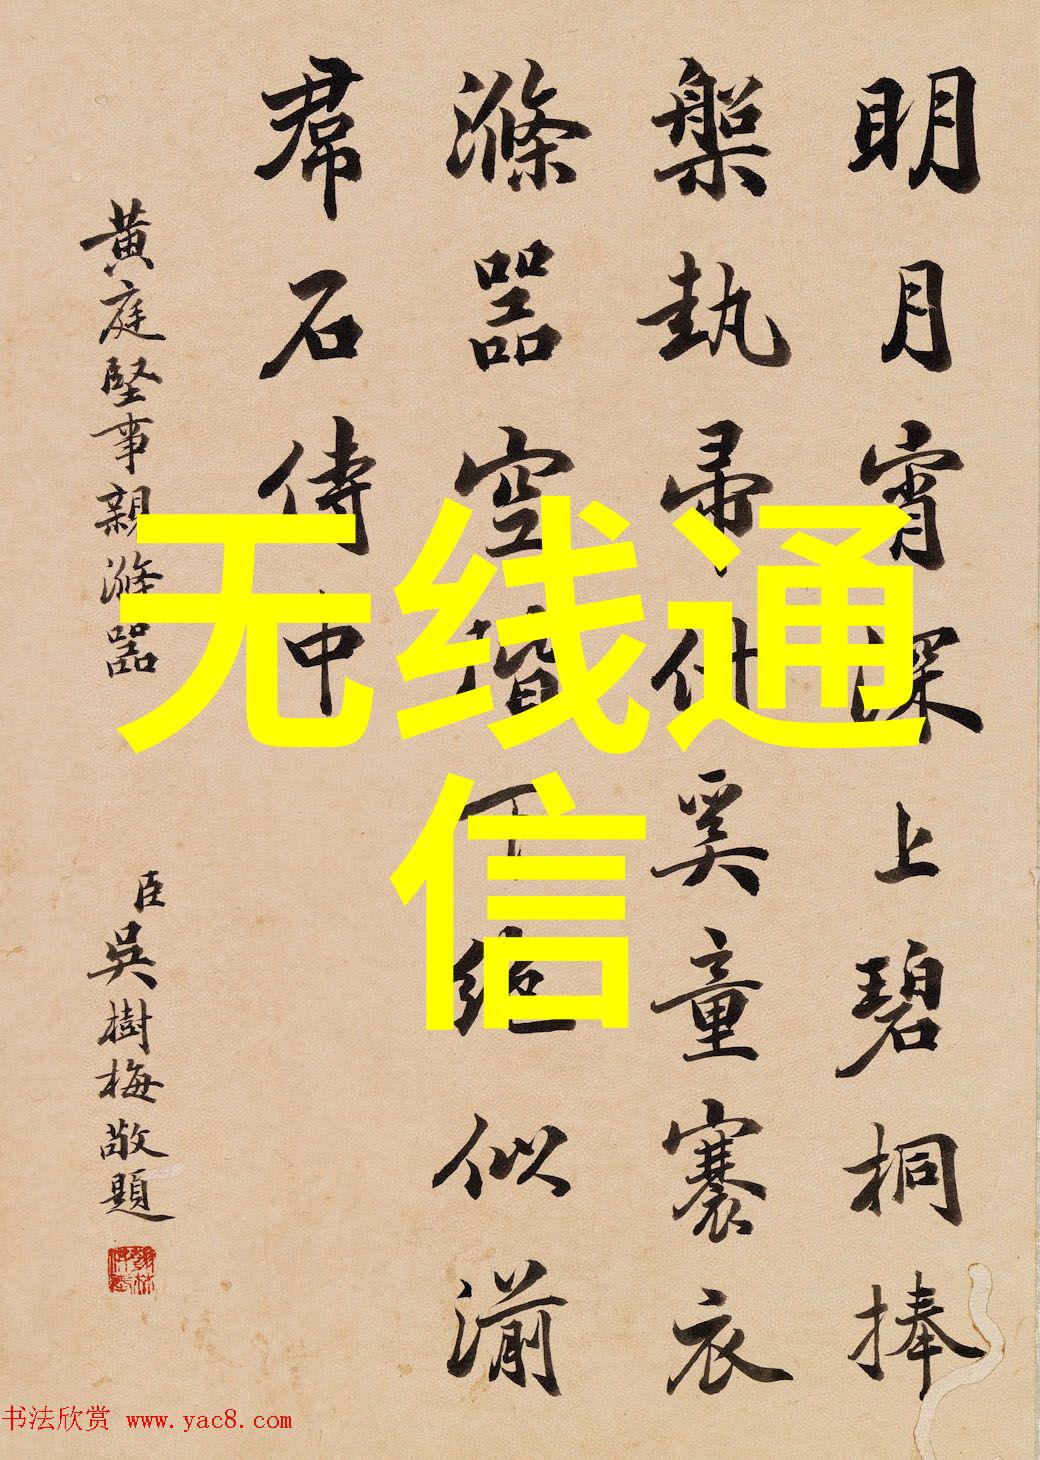 明月宵深上碧桐捧
槃執帚付奚童褰衣
滌器空堦下絕似湔
帬石侍中
黃庭堅事親滌器
臣吳樹梅敬題
无线通
信
书法欣赏 www.yac8.com